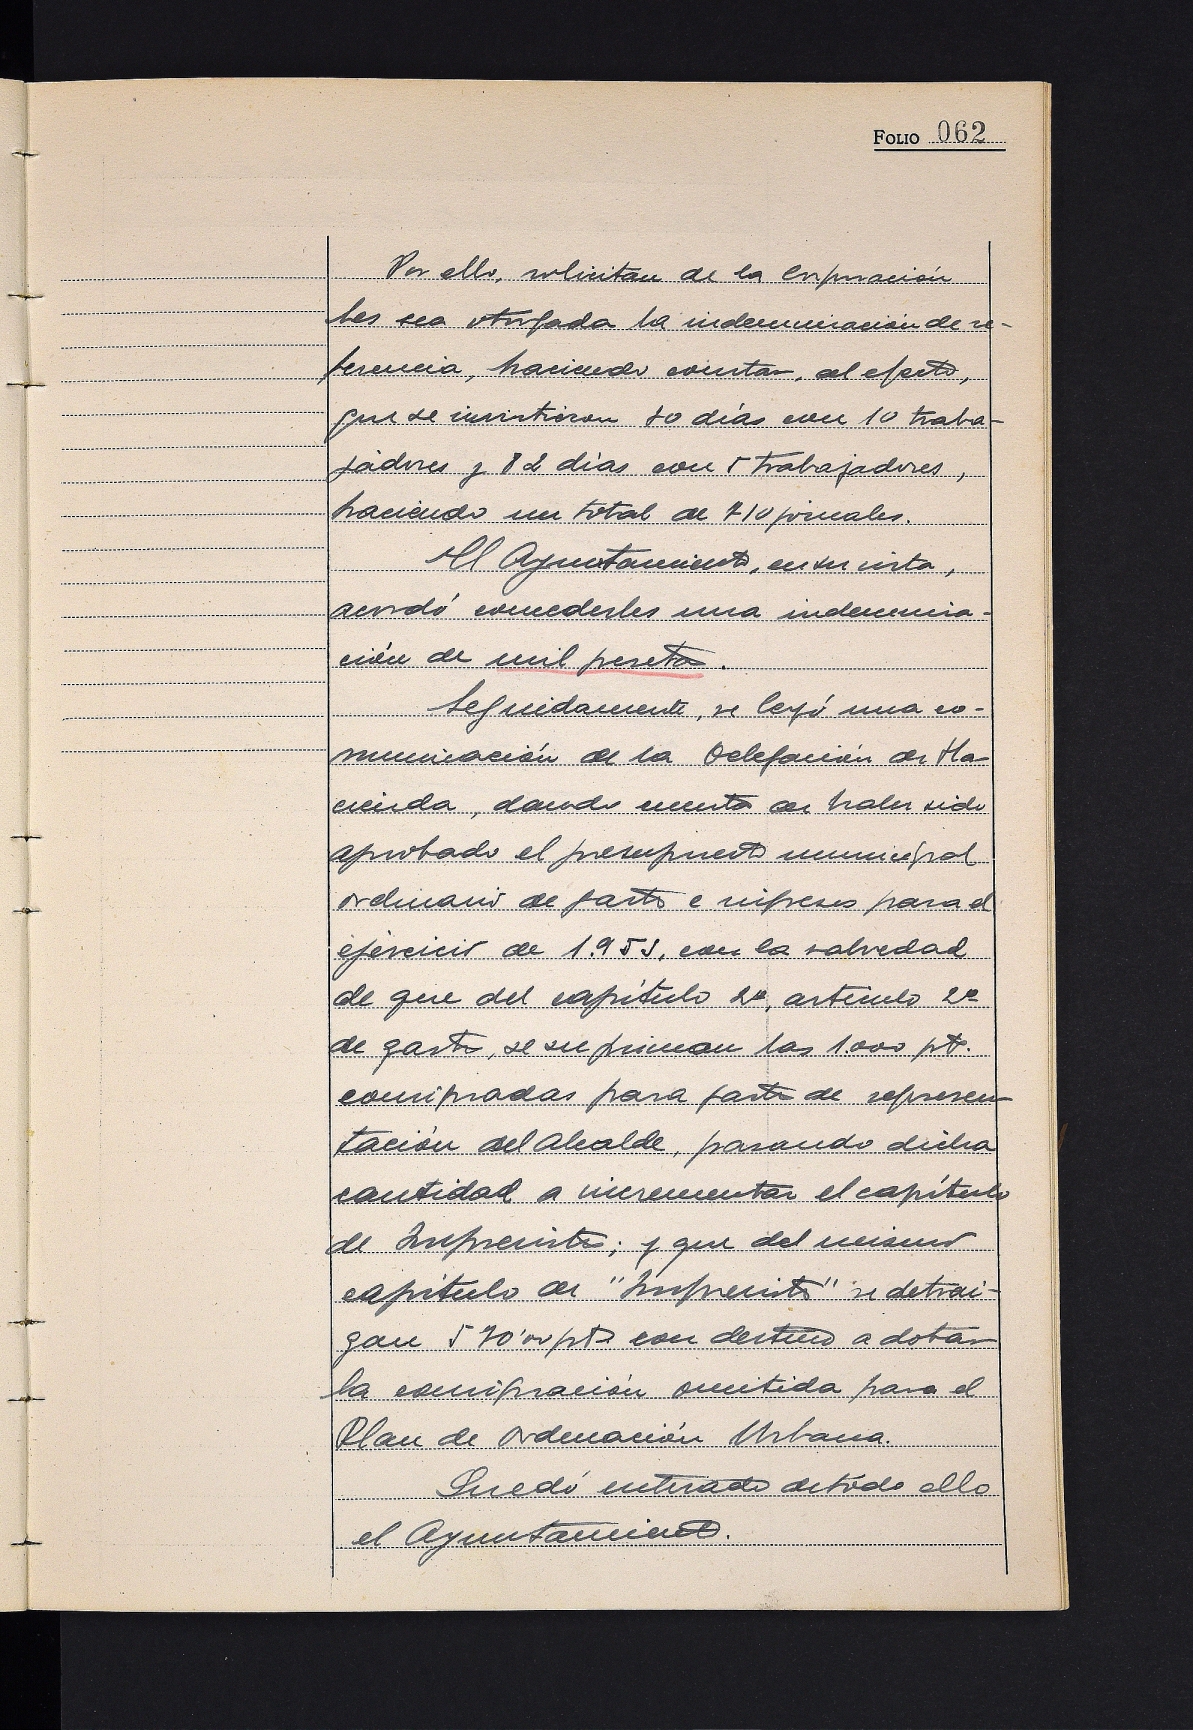 FOLIO 062
Por ello, solicitan de la Corporación
les sea otorgada la indemnización de re-
ferencia, haciendo constar, al efecto,
que se invirtieron 30 días con 10 traba-
jadores y 82 días con 5 trabajadores,
haciendo un total de 710 jornales.
El Ayuntamiento, en su vista,
acordó concederles una indemniza-
ción de mil pesetas.
Seguidamente, se leyó una co-
municación de la Delegación de Ha-
cienda, dando cuenta de haber sido
aprobado el presupuesto municipal
ordinario de gastos e ingresos para el
ejercicio de con la salvedad
de que del capítulo 2º, artículo 2º
de gastos, se supriman las 1.000 pts.
consignadas para gastos de represen-
tación del Alcalde, pasando dicha
cantidad a incrementar el capítulo
de Imprevistos; y que del mismo
capítulo de "Imprevistos" se detrai-
gan 570'00 pts con destino a dotar
la consignación omitida para el
Plan de Ordenación Urbana.
Quedó enterado de todo ello
el Ayuntamiento.